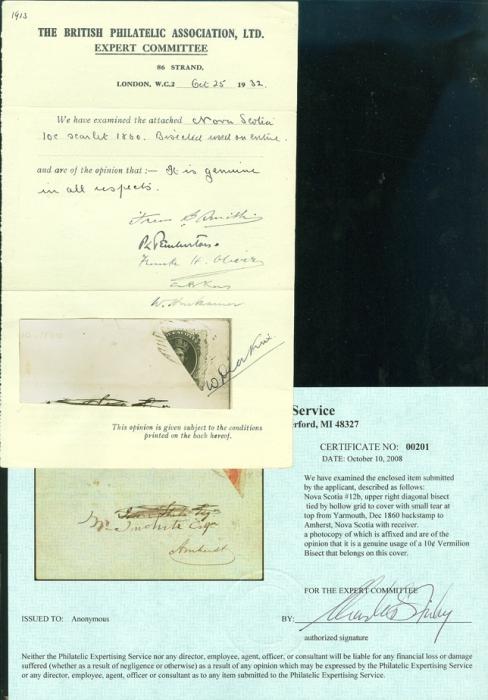 1913
THE BRITISH PHILATELIC ASSOCIATION, LTD.
EXPERT COMMITTEE
86 STRAND,
LONDON, W.C.2 Oct 25 1932.
We have examined the attached Nova Scotia
10c scarlet 1860. Bisected used on entire.
and are of the opinion that :— It is genuine
in all respects.
This opinion is given subject to the conditions
printed on the back hereof.
Service
erford, MI 48327
CERTIFICATE NO: 00201
DATE: October 10, 2008
We have examined the enclosed item submitted
by the applicant, described as follows:
Nova Scotia #12b, upper right diagonal bisect
tied by hollow grid to cover with small tear at
top from Yarmouth, Dec 1860 backstamp to
Amherst, Nova Scotia with receiver.
a photocopy of which is affixed and are of the
opinion that it is a genuine usage of a 10¢ Vermilion
Bisect that belongs on this cover.
Esqr
Amherst
FOR THE EXPERT COMMITTEE
ISSUED TO: Anonymous
BY:
authorized signature
Neither the Philatelic Expertising Service nor any director, employee, agent, officer, or consultant will be liable for any financial loss or damage
suffered (whether as a result of negligence or otherwise) as a result of any opinion which may be expressed by the Philatelic Expertising Service
or any director, employee, agent, officer or consultant as to any item submitted to the Philatelic Expertising Service.